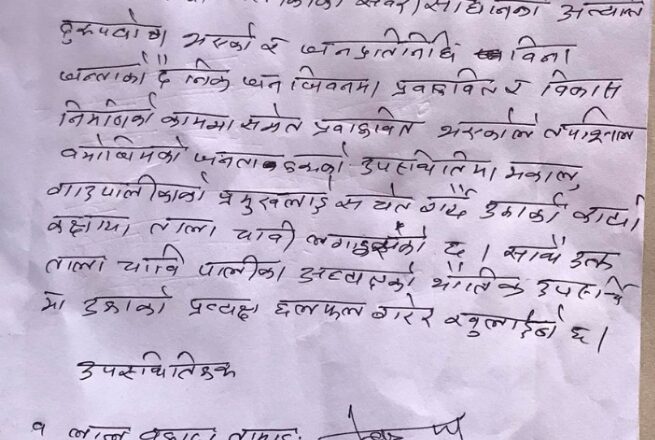 दुरुपयोग भएको र जनप्रतिनिधि विना
जन्ताको दैनिक जन जिवनमा प्रवावित र विकास
निर्माणको काममा समेत प्रवावित भएकोले तपशिल
बमोजिमको जनताहरुको उपस्थितिमा मकालु
गाउपालीकाको प्रमुखलाई सचेत गर्दै उहाको कार्य
कक्षमा ताला चावी लगाइएको छ । साथै उक्त
ताला चावि पालीका अध्यक्षको भौतिक उपस्थि
मा उहाको प्रत्यक्ष छलफल गरेर खुलाईने छ ।
उपस्थितिहरु